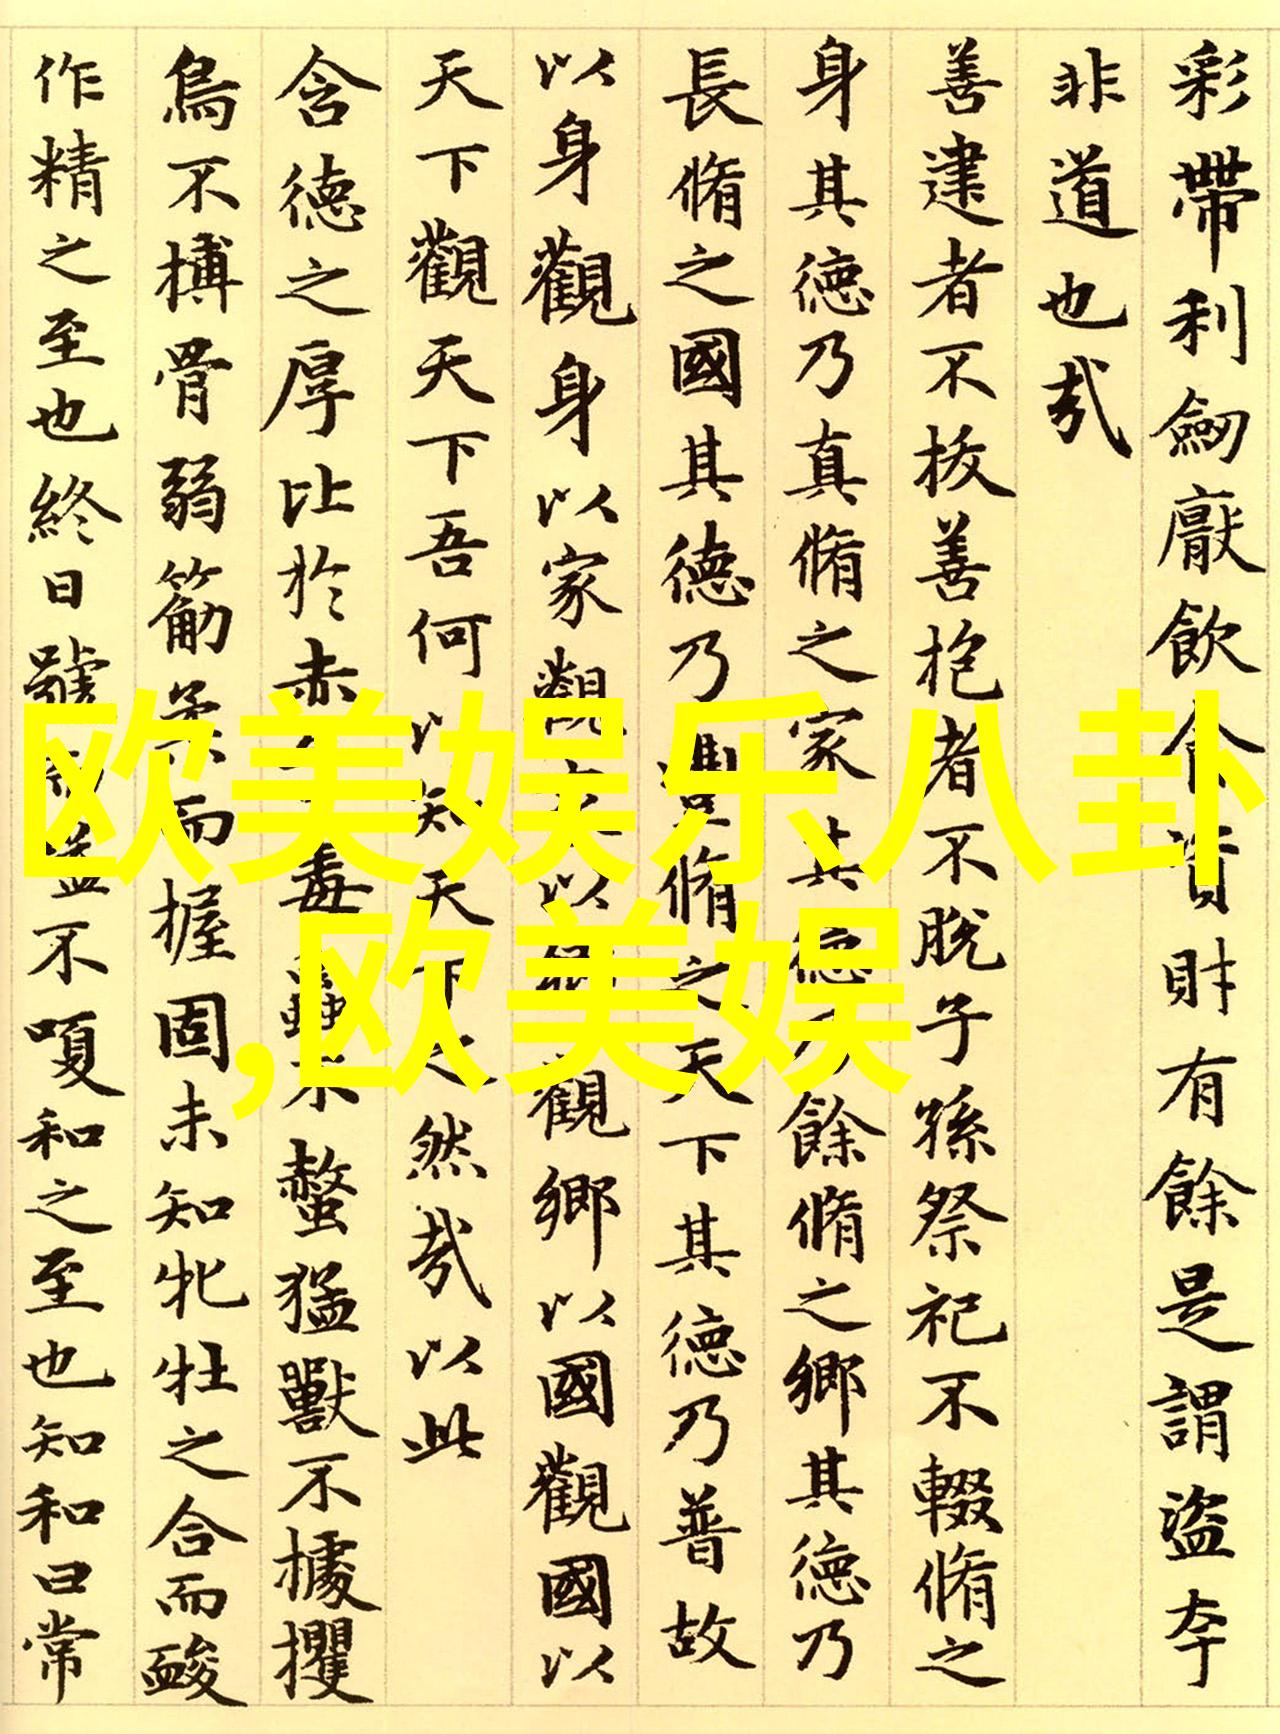 彩帶利劒厭飲食資財有餘是謂盜夸
非道也㢤
善建者不拔善抱者不脫子孫祭祀不輟脩之
身其德乃真脩之家其德乃餘脩之鄉其德乃
長脩之國其德乃豊脩之天下其德乃普故
以身觀身以家觀家以鄉觀鄉以國觀國以
天下觀天下吾何以知天下之然㢤以此
含德之厚比於赤子毒蟲不螫猛獸不據攫
鳥不搏骨弱筋柔而握固未知牝牡之合而䘒
作精之至也終日號而嗌不嗄和之至也知和曰常
欧美娱乐八卦
,欧美娱